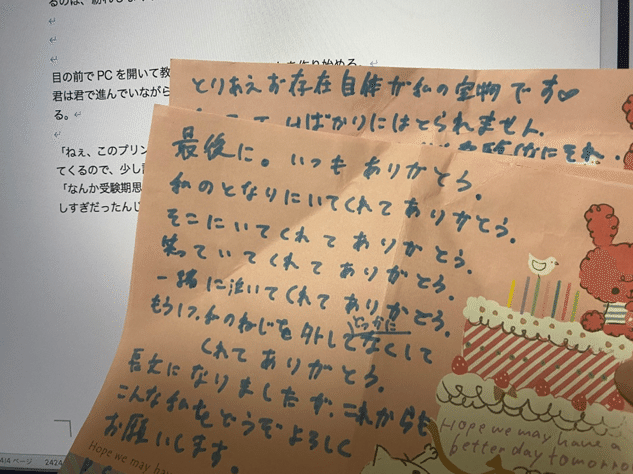 目の前でPCを開いて教
君は君で進んでいながら
る。
「ねぇ、このプリン
てくるので、少し
「なんか受験期思
しすぎだったんじ
4/4 ページ 2424
とりあえお存在自体が私の宝物です♡
ばかりにはとられません.
最後に。いつもありがとう.
私のとなりにいてくれてありがとう.
そこにいてくれてありがとう.
笑っていてくれてありがとう.
一緒に泣いてくれてありがとう.
もう1つ.私のねじを外してなくして
どっかに
くれてありがとう.
長文になりましたが.これからも
こんな私をどうぞよろしく
お願いします。
Hope we may have a
better day tomorro
Hope we may hav